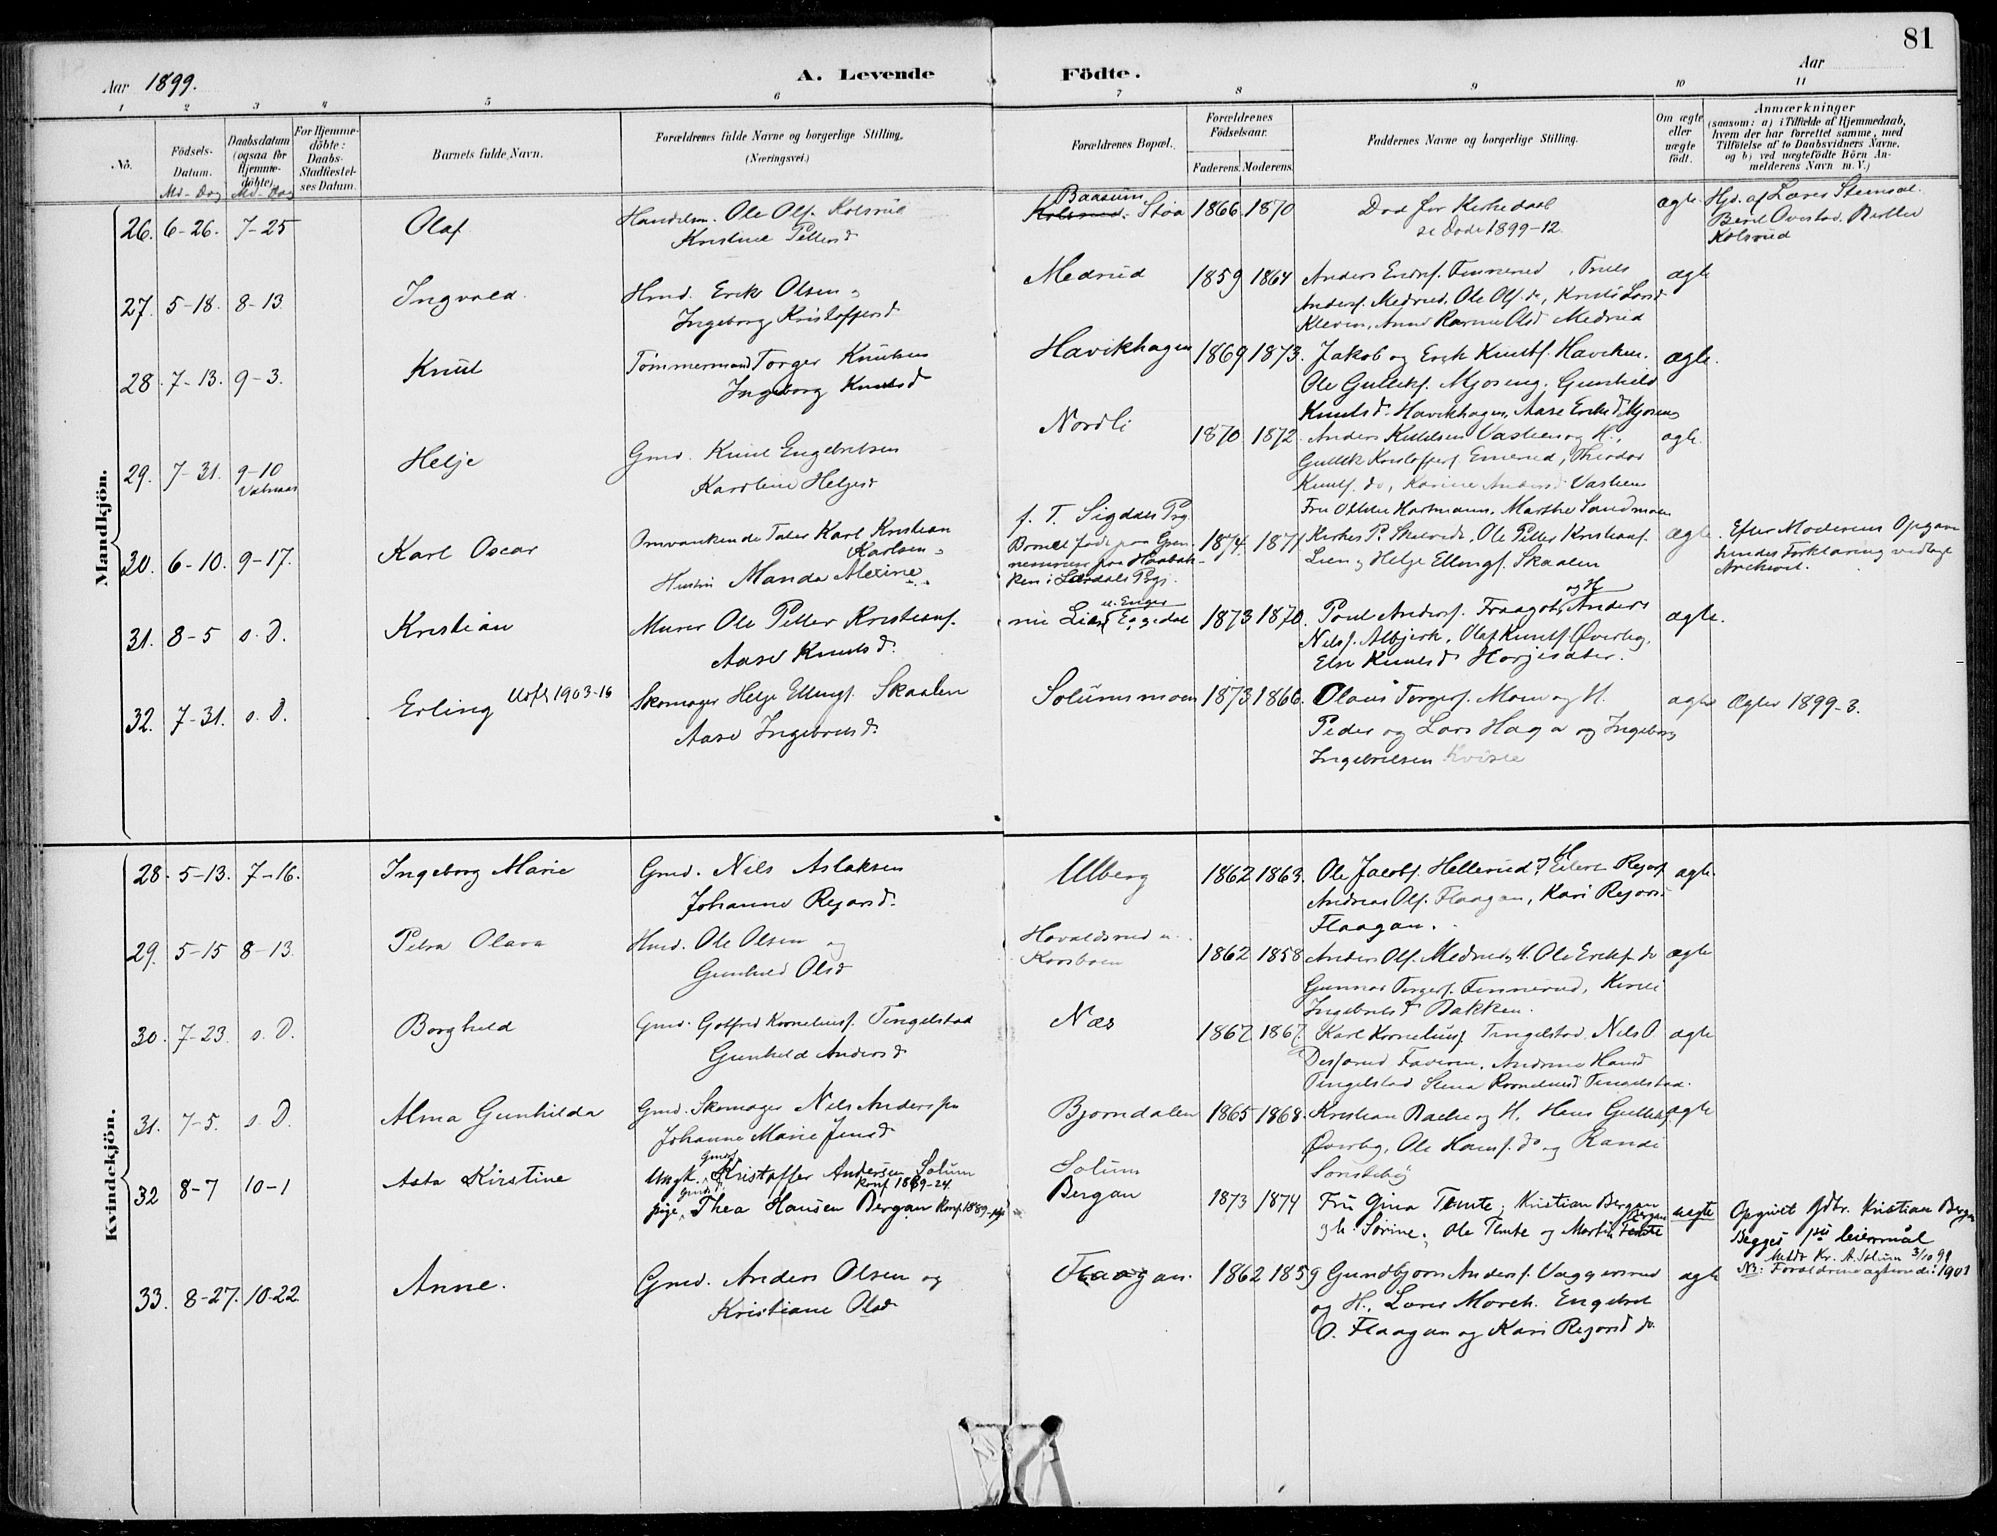 81
Aar 1899.
A. Levende Födte.
Aar
1 2 3 4 5 6 7 8 9 10 11
No.
Födsels-Datum.
Md - Dag
Daabsdatum (ogsaa for Hjemme-döbte)
Md - Dag
For Hjemme-döbte: Daabs-Stadfæstel-ses Datum.
Barnets fulde Navn.
Forældrenes fulde Navne og borgerlige Stilling. (Næringsvei.)
Forældrenes Bopæl.
Forældrenes Födselsaar.
Faderens. Moderens.
Faddernes Navne og borgerlige Stilling.
Om ægte eller uægte födt.
Anmærkninger
(saasom: a) i Tilfælde af Hjemmedaab, hvem der har forrettet samme, med Tilföielse af to Daabsvidners Navne, og b) ved uægtefödte Börn An-melderens Navn m. V.)
Mandkjön.
26. 6-26. 7-25 Olaf
Handelsm. Ole Ols. Kolsrud
Kristine Petersd
Baasum
Kolsrud. Stoa 1866. 1870
Död før Kirkedaab
se Døde 1899-12.
ægte. Hjd. af Lærer Stensal.
Kolsrud
27. 5-18. 8-13. Ingvald.
Hmd. Erik Olsen
Ingeborg Kristoffersd
Medrud 1859 1864
Anders Finnerud, Truls
Anders. Medrud, Ole Ols. do, Larsd
Kleven, Anne Karine Olsd Medrud
ægte
28. 7-13. 9-3. Knut
Tømmermand Torger Knutsen
Ingeborg Knutsd
Havikhagen 1869 1873.
Jakob og Erik Knuts. Haviken.
Ole Gulliks. Mjøseng. Gunhild
Knutsd. Havikhagen, Aase Eriksd Mjøseng
ægte.
29. 7-31. 9-10 Helje
Gmd. Knut Engebretsen
Karoline Helgesd
Nordli 1870 1872.
Anders Knutsen Vashus og H.,
Gullik Kristoffers. Enerud, Theodor
Knuts. do, Karine Andersd Vashus
ægte.
30. 6-10. 9-17. Karl Oscar
Omvankende Tater Karl Kristian
Karlsen
Hustru Manda Alexine
f. T. Sigdals Pg.
Barnet født paa
ken i Lærdals Pgj.
1874. 1871
Fru Hartmann, Marthe Sandmoen
Ole Petter Kristians.
Lien og Helge Ellings. Skaalen
ægte. Efter Moderens Opgave
hendes Forklaring vedlagt
Archivet.
31. 8-5 s. D. Kristian
Murer Ole Petter Kristians.
Aase Knutsd.
Lien Eggedal 1873 1870.
Poul Anders. og H Anders
Nils. Albjerk, Olaf Knuts. Øverby,
Else Knutsd Horjesæter.
ægte.
32. 7-31. s. D. Erling Udfl 1903-16
Skomager Helge Ellings. Skaalen
Aase Ingebretsd.
Solumsmoen 1873 1866.
Olaus Torgers. Moen og H.
Peder og Lars Haga og Ingeborg
Ingebretsen Kvisle
ægte Ægtev 1899-3.
Kvindekjön.
28. 5-13. 7-16. Ingeborg Marie
Gmd. Nils Aslaksen
Johanne Regarsd.
Ulberg 1862 1863.
Ole Jacobs. Hellerud, H Eilert Regars.
Andreas Ols. Flaagan, Kari Regarsd
Flaagan.
ægte.
29. 5-15 8-13. Petra Olava
Hmd. Ole Olsen og
Gunhild Olsd
Havaldsrud u.
Korsboen 1862 1858
Anders Ols. Medrud, H. Ole Eriks. do
Gunnar Torgers. Finnerud, Kirsti
Ingebretsd Bakken.
ægte
30. 7-23. s. D. Borghild
Gmd. Gotfred Kornelius. Tingelstad
Gunhild Andersd
Næs 1862 1867.
Karl Kornelius. Tingelstad, Nils O.
Tingelstad Korneliusd Tingelstad.
ægte
31. 7-5. s. D. Alma Gunhilda
Gmd. Skomager Nils Andersen
Johanne Marie Jensd
Bjørndalen 1865 1868.
Kristian Bache og H. Hans Gulliks.
Øverby, Ole Hans. do og Randi
ægte
32 8-7 10-1 Asta Kirstine
Ungk. Gmds. Kristoffer Andersen Solum
Konf 1889-24.
pige, Thea Hansen Bergan Konf. 1889-
Solum
Bergan 1873 1874
Fru Gina Temte, Kristian Bergan
gh. Sorine, Ole Temte og Martin Bergan
uægte
Opgivet Gdbr. Kristian Bergan
Begges 1ste leiermål
Meldt Kr. A. Solum 3/10 99
NB: Forældrene ægteviede 1901
33. 8-27. 10-22. Anne.
Gmd. Anders Olsen og
Kristiane Olsd
Flaagan. 1862 1859
Gundbjørn Anders. Vaggersrud
og H., Lars March. Engebret
O. Flaagan og Kari Regarsd do.
ægte